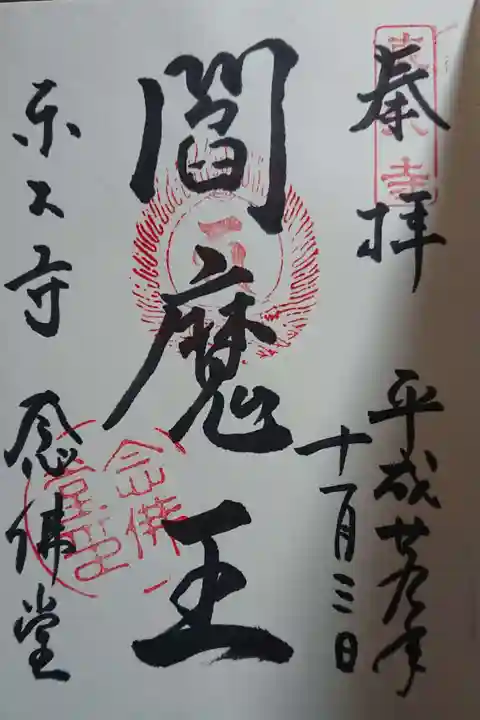 東大寺
奉拝
平成廿 年
十一月三日
閻魔王
東大寺 念佛堂
念佛堂印